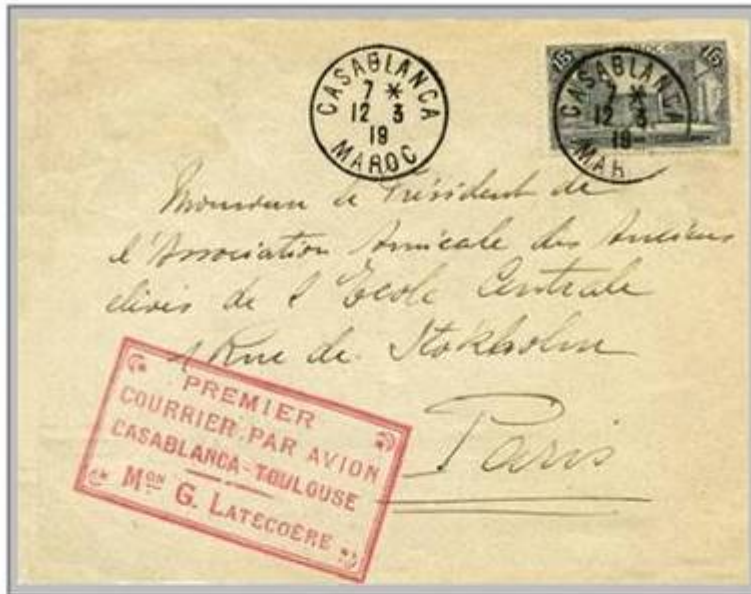 CASABLANCA
7 *
12 3
19
MAROC
15 MAROC 15
CASABLANCA
7 *
12 3
19
MAR
Monsieur le Président de
l'Association Amicale des Anciens
élèves de l'Ecole Centrale
1 Rue de Stokholm
Paris
PREMIER
COURRIER PAR AVION
CASABLANCA-TOULOUSE
Mon G. LATÉCOÈRE